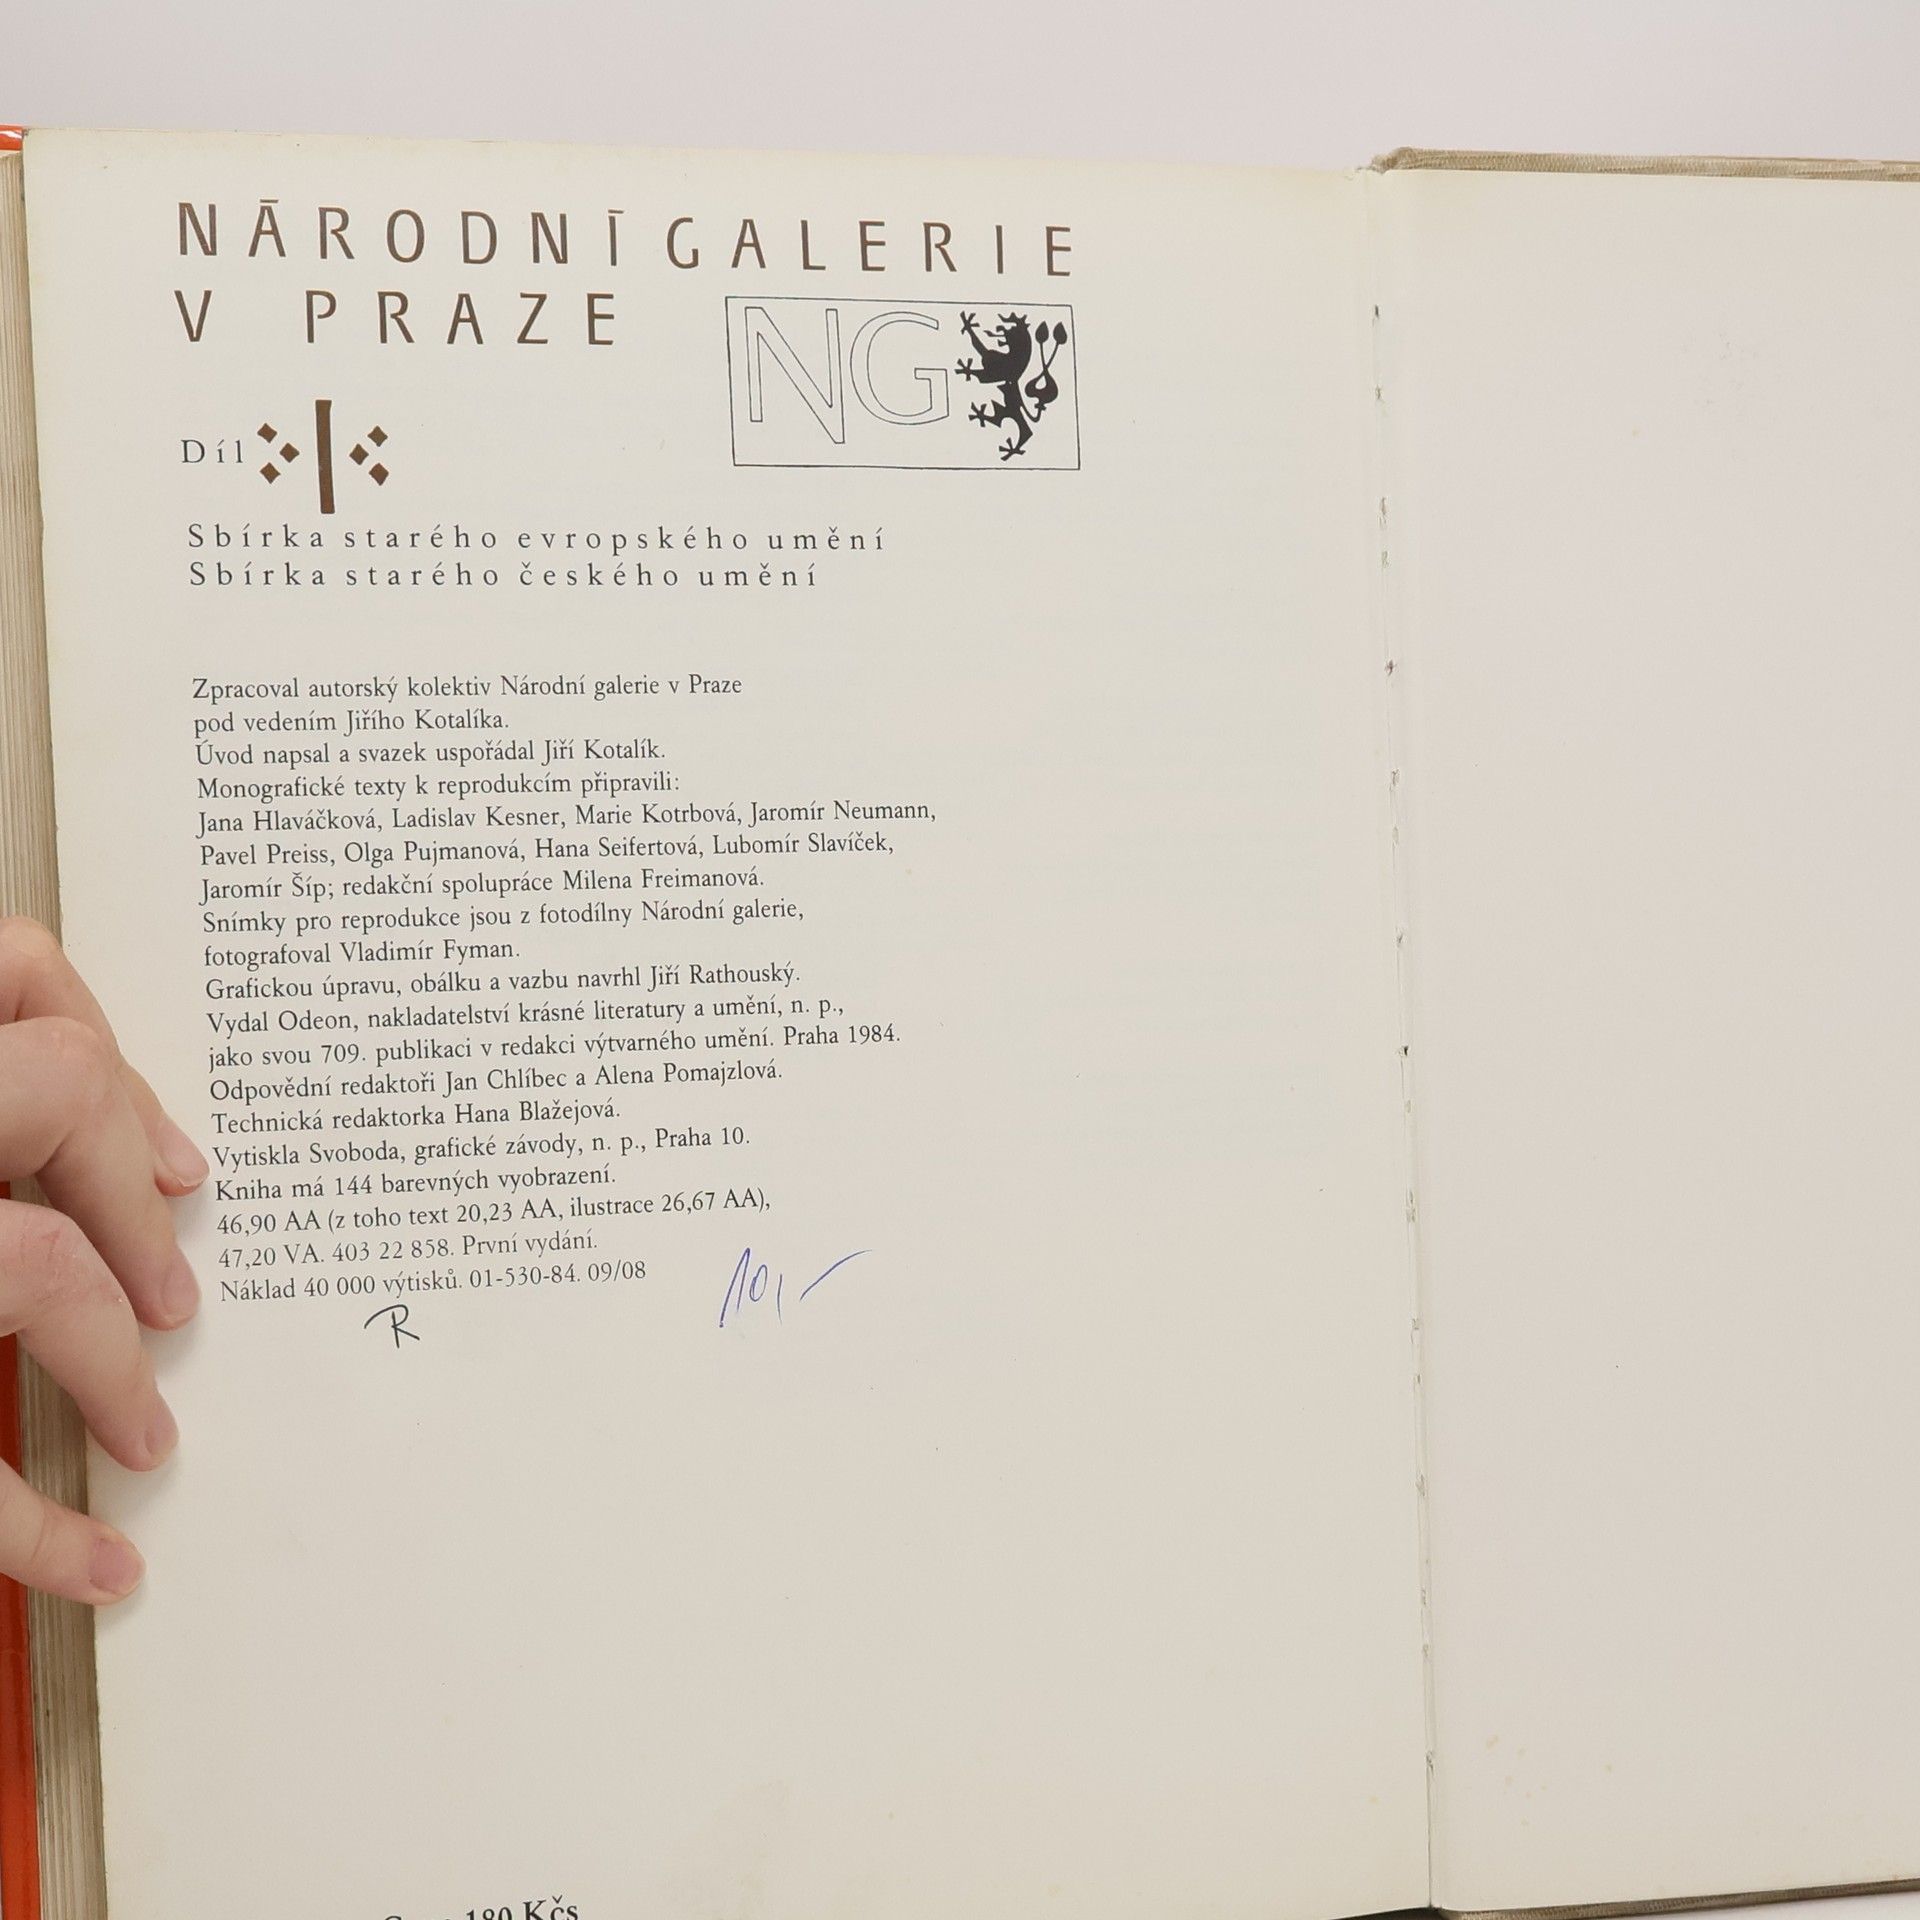 NÁRODNÍ GALERIE
V PRAZE
NG
Díl I
Sbírka starého evropského umění
Sbírka starého českého umění
Zpracoval autorský kolektiv Národní galerie v Praze
pod vedením Jiřího Kotalíka.
Úvod napsal a svazek uspořádal Jiří Kotalík.
Monografické texty k reprodukcím připravili:
Jana Hlaváčková, Ladislav Kesner, Marie Kotrbová, Jaromír Neumann,
Pavel Preiss, Olga Pujmanová, Hana Seifertová, Lubomír Slavíček,
Jaromír Šíp; redakční spolupráce Milena Freimanová.
Snímky pro reprodukce jsou z fotodílny Národní galerie,
fotografoval Vladimír Fyman.
Grafickou úpravu, obálku a vazbu navrhl Jiří Rathouský.
Vydal Odeon, nakladatelství krásné literatury a umění, n. p.,
jako svou 709. publikaci v redakci výtvarného umění. Praha 1984.
Odpovědní redaktoři Jan Chlíbec a Alena Pomajzlová.
Technická redaktorka Hana Blažejová.
Vytiskla Svoboda, grafické závody, n. p., Praha 10.
Kniha má 144 barevných vyobrazení.
46,90 AA (z toho text 20,23 AA, ilustrace 26,67 AA),
47,20 VA. 403 22 858. První vydání.
Náklad 40 000 výtisků. 01-530-84. 09/08
R
10,-
180 Kčs